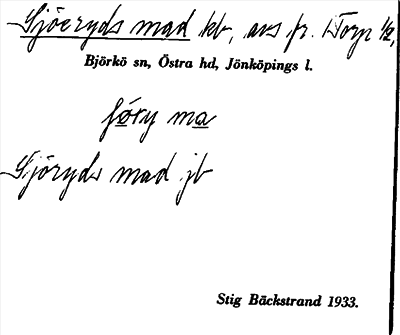 Sjöeryds mad kb, avs. fr. Torp 1/2,
Björkö sn, Östra hd, Jönköpings l.
sjöry ma
Sjöryds mad jb
Stig Bäckstrand 1933.